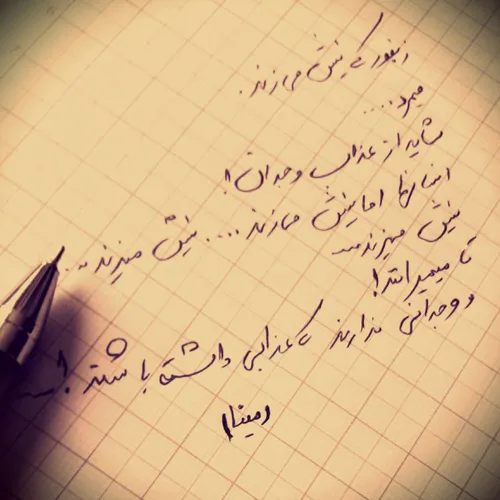 زنبور که نیش میزند.
میمرد....
شاید از عذاب وجدان!
انسانها اما نیش میزنند.... نیش میزنند...
نیش میزنند...
تا میمیرانند!
و وجدانی ندارند که عذابی داشته باشند!...